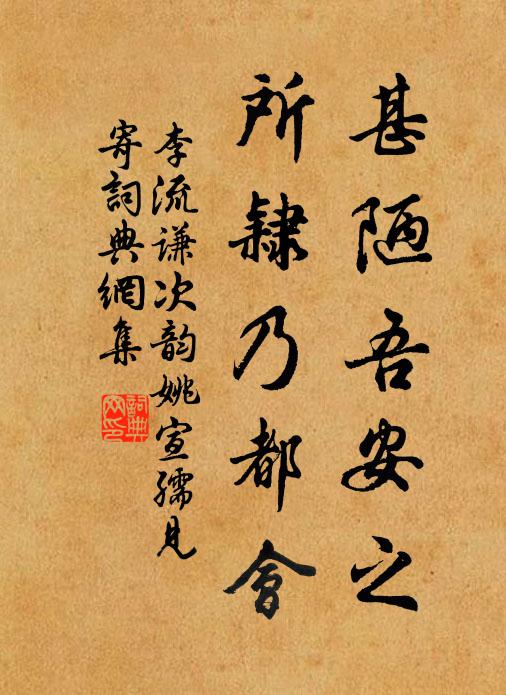 甚陋吾安之
所隸乃都會
李流謙次韵姚宣孺見
寄詞典網集
詞典
网印